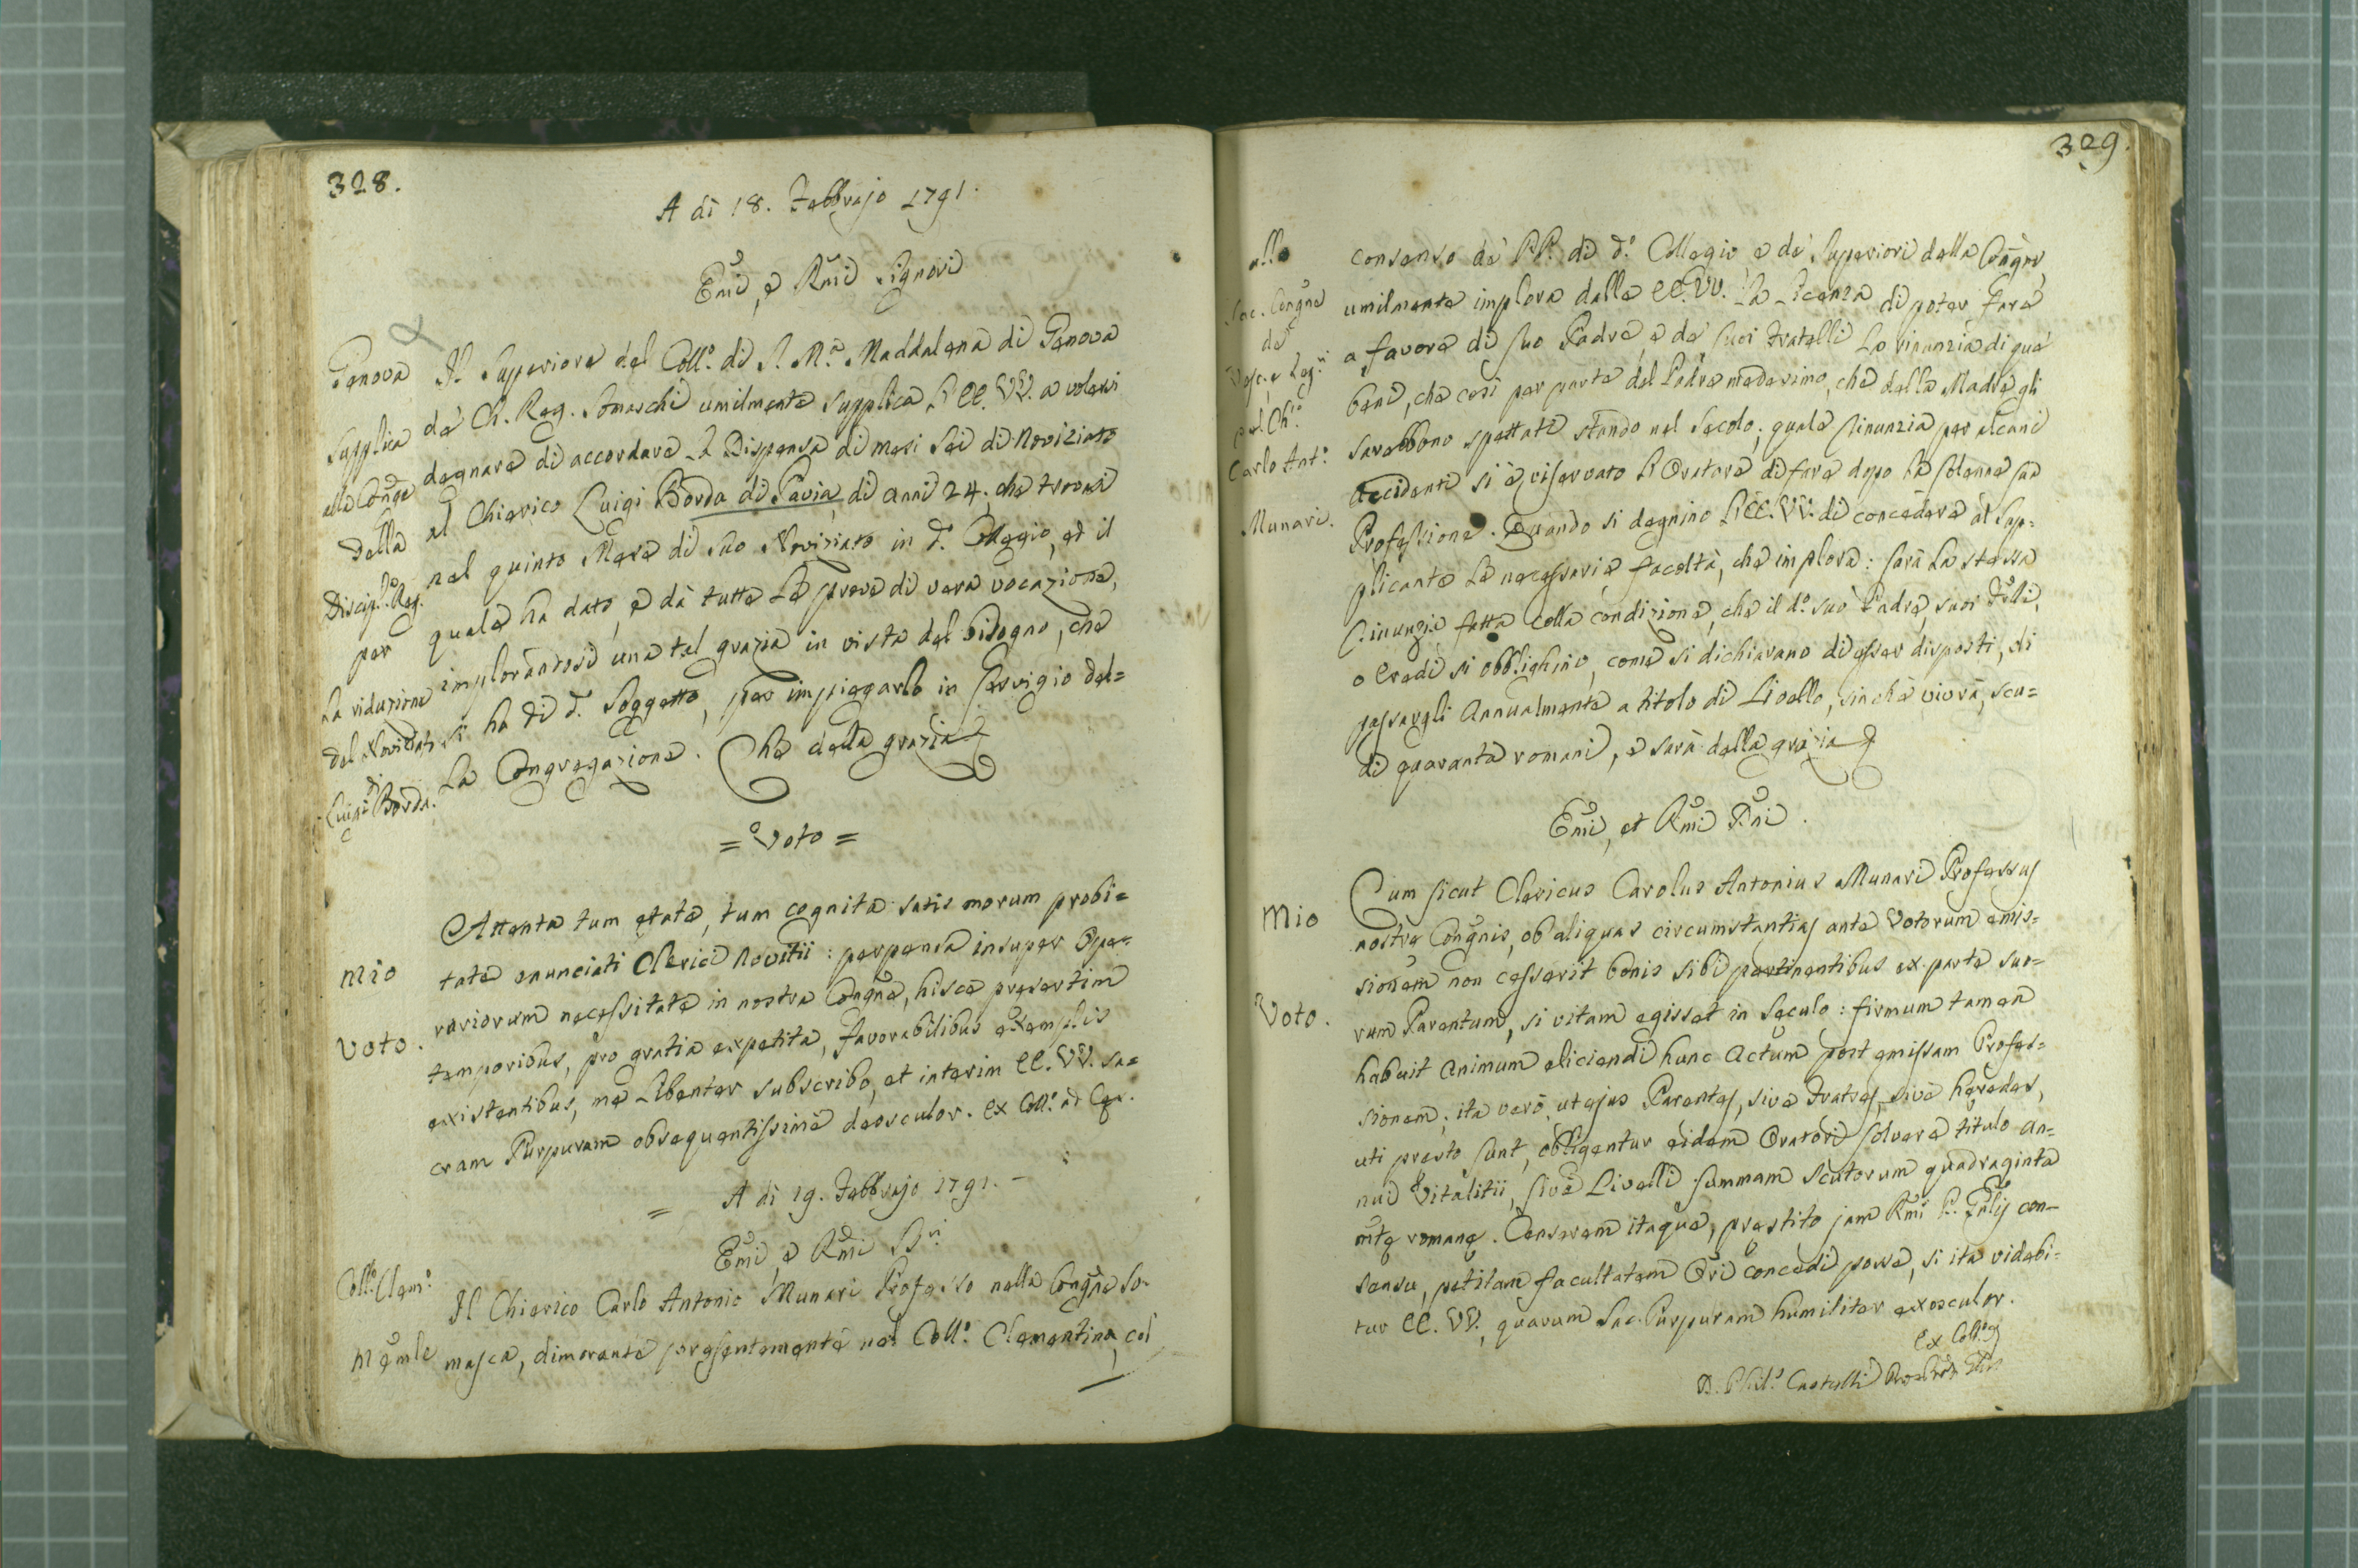 328.
A dì 18. Febbrajo 1791.
Emi, e Rmi Signori
Genova
Supplica
alla Congne
della
Discipl. Reg.
per
la riduzione
del Noviziato
di
Luigi Borda.
Il Superiore del Coll.o di S. M.a Maddalena di Genova
de' Ch. Reg. Somaschi umilmente supplica l'EE. VV. a volersi
degnare di accordare la Dispensa di mesi sei di Noviziato
al Chierico Luigi Borda di Pavia, di anni 24, che trovasi
nel quinto Mese di suo Noviziato in d.o Collegio, ed il
quale ha dato, e dà tutte le prove di vera vocazione,
implorandosi una tal grazia in vista del bisogno, che
si ha di d.o Soggetto, per impiegarlo in servigio del=
la Congregazione. Che della grazia
= Voto =
Mio
Voto.
Attenta tum etate, tum cognita satis morum probi=
tate enunciati Clerici Novitii: perpensa insuper Ope=
rariorum necessitate in nostra Congne, hisce presertim
temporibus, pro gratia expetita, favorabilibus exemplis
existentibus, me libenter subscribo, et interim EE. VV. sa=
cram Purpuram obsequentissime deosculor. Ex Coll.o
= A dì 19. Febbrajo 1791. -
Emi, e Rmi
Coll.o Clem.o
Il Chierico Carlo Antonio Munari Professo nella Congne So-
masca, dimorante presentemente nel Coll.o Clementino, col
329.
alla
Sac. Congne
de'
Vesc. e Reg.ri
pel Ch.o
Carlo Ant.o
Munari.
consenso de' PP. di d.o Collegio, e de' Superiori della Congne,
umilmente implora dalle EE. VV. la licenza di poter fare
a favore di suo Padre e de' suoi Fratelli la rinunzia di que'
beni, che così per parte del Padre medesimo, che della Madre gli
sarebbono spettati stando nel secolo; quale rinunzia per alcuni
accidenti si è riservato l'Oratore di fare dopo la solenne sua
Professione. Quando si degnino l'EE. VV. di concedere al Sup=
plicante le necessarie facoltà, che implora: sarà la stessa
rinunzia fatta colla condizione, che il d.o suo Padre, suoi Flli,
o eredi si obblighino, come si dichiarano di esser disposti, di
passargli annualmente a titolo di Livello, sinchè vivrà, scu=
di quaranta romani, e sarà della grazia
Emi, et Rmi Dni.
Mio
Voto.
Cum sicut Clericus Carolus Antonius Munari Professus
nostre Congnis, ob aliquas circumstantias ante Votorum emis=
sionem non cesserit bonis sibi pertinentibus ex parte suo=
rum Parentum, si vitam egisset in Seculo: firmum tamen
habuit animum eliciendi hunc actum post emissam Profes=
sionem; ita verò, ut ejus Parentes, sive Fratres, sive heredes,
uti presto sunt, obligentur eidem Oratori solvere titulo an=
nui Vitalitii, sive Livelli summam scutorum quadraginta
mte romane. Censerem itaque, prestito jam Rmi P. Gnlis con-
sensu, petitam facultatem Ori concedi posse, si ita videbi=
tur EE. VV., quarum Sac. Purpuram humiliter exosculor.
Ex Coll.o
D. Phil.s Castelli